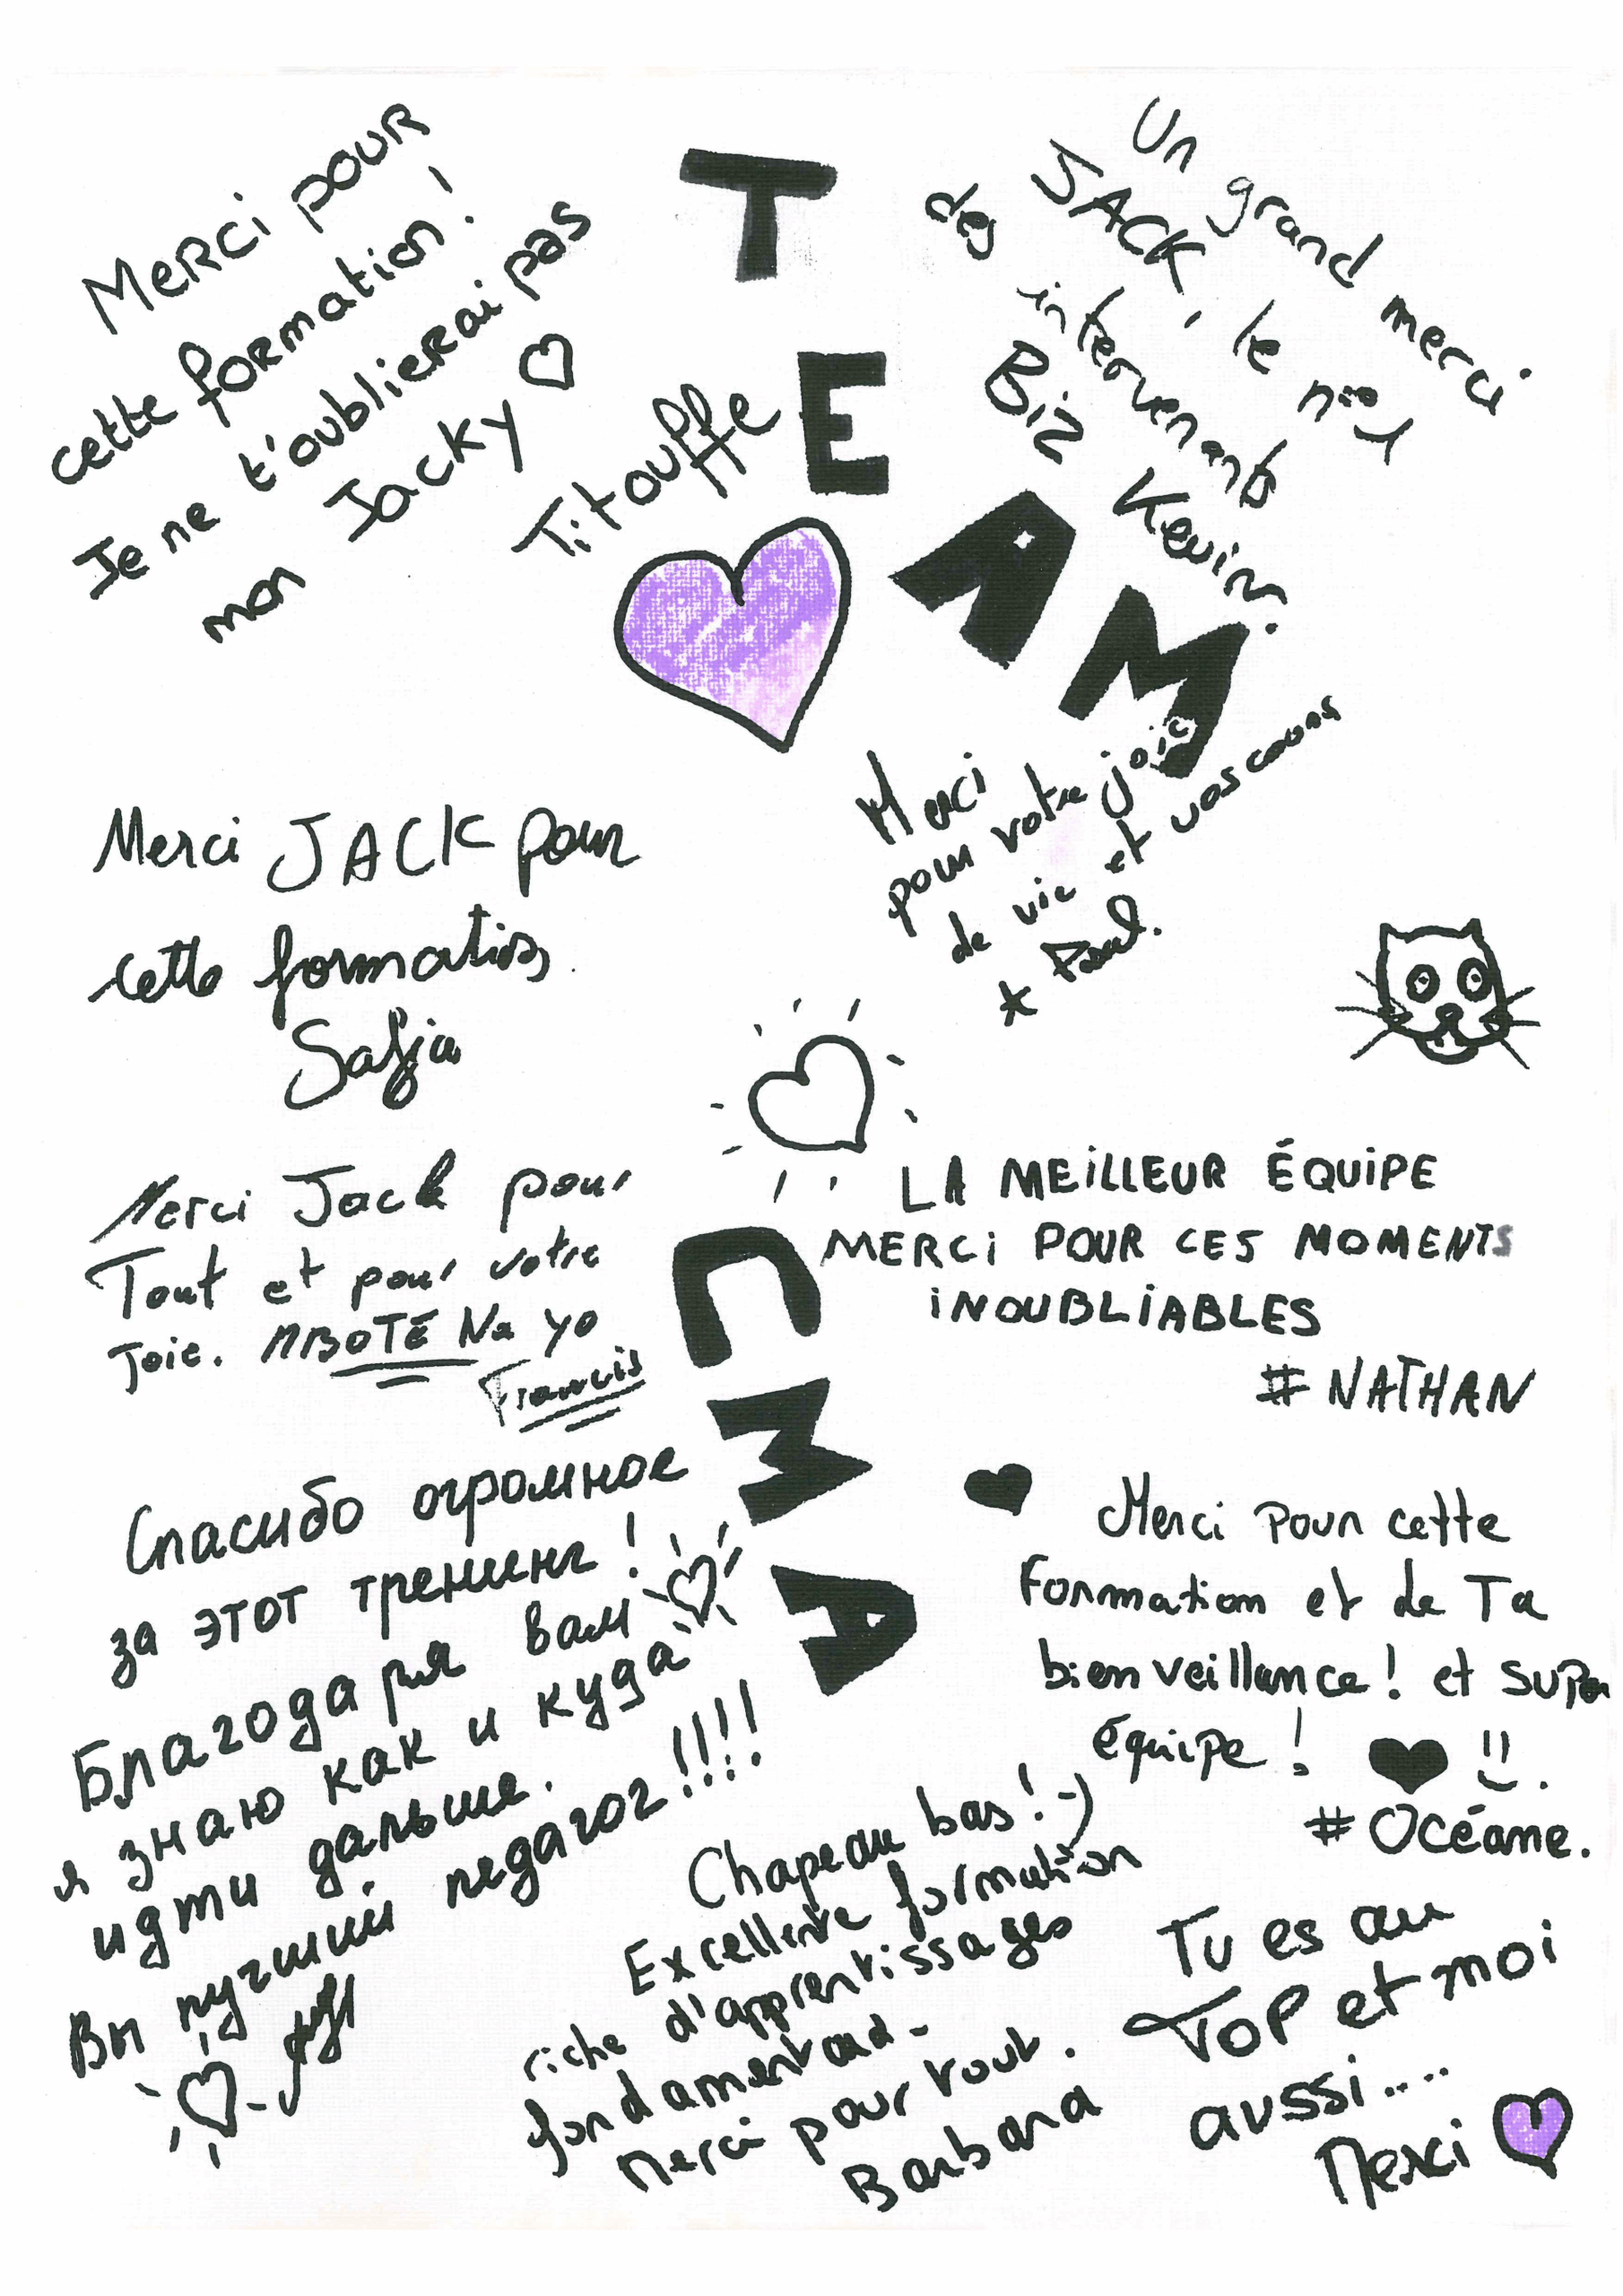 Merci pour
cette formation !
Je ne t'oublierai pas
mon Jacky
Titouffe
TEAM
Un grand merci
JACK, le n°1
des intervenants
Biz Kevin.
Merci
pour votre joie
de vie et vos cours
Paul.
Merci JACK pour
cette formation.
Safia
Merci Jack pour
Tout et pour votre
Joie. MBOTÉ Na yo
Francis
LA MEILLEUR ÉQUIPE
MERCI POUR CES MOMENTS
INOUBLIABLES
# NATHAN
CMA
Спасибо огромное
за этот тренинг !
Благодаря вам
я знаю как и куда
идти дальше.
Вы лучший педагог !!!!
Merci pour cette
Formation et de Ta
bienveillance ! et super
équipe !
# Océane.
Chapeau bas ! :-)
Excellente formation
riche d'apprentissages
fondamentaux.
Merci pour tout.
Barbara
Tu es au
TOP et moi
aussi....
Merci